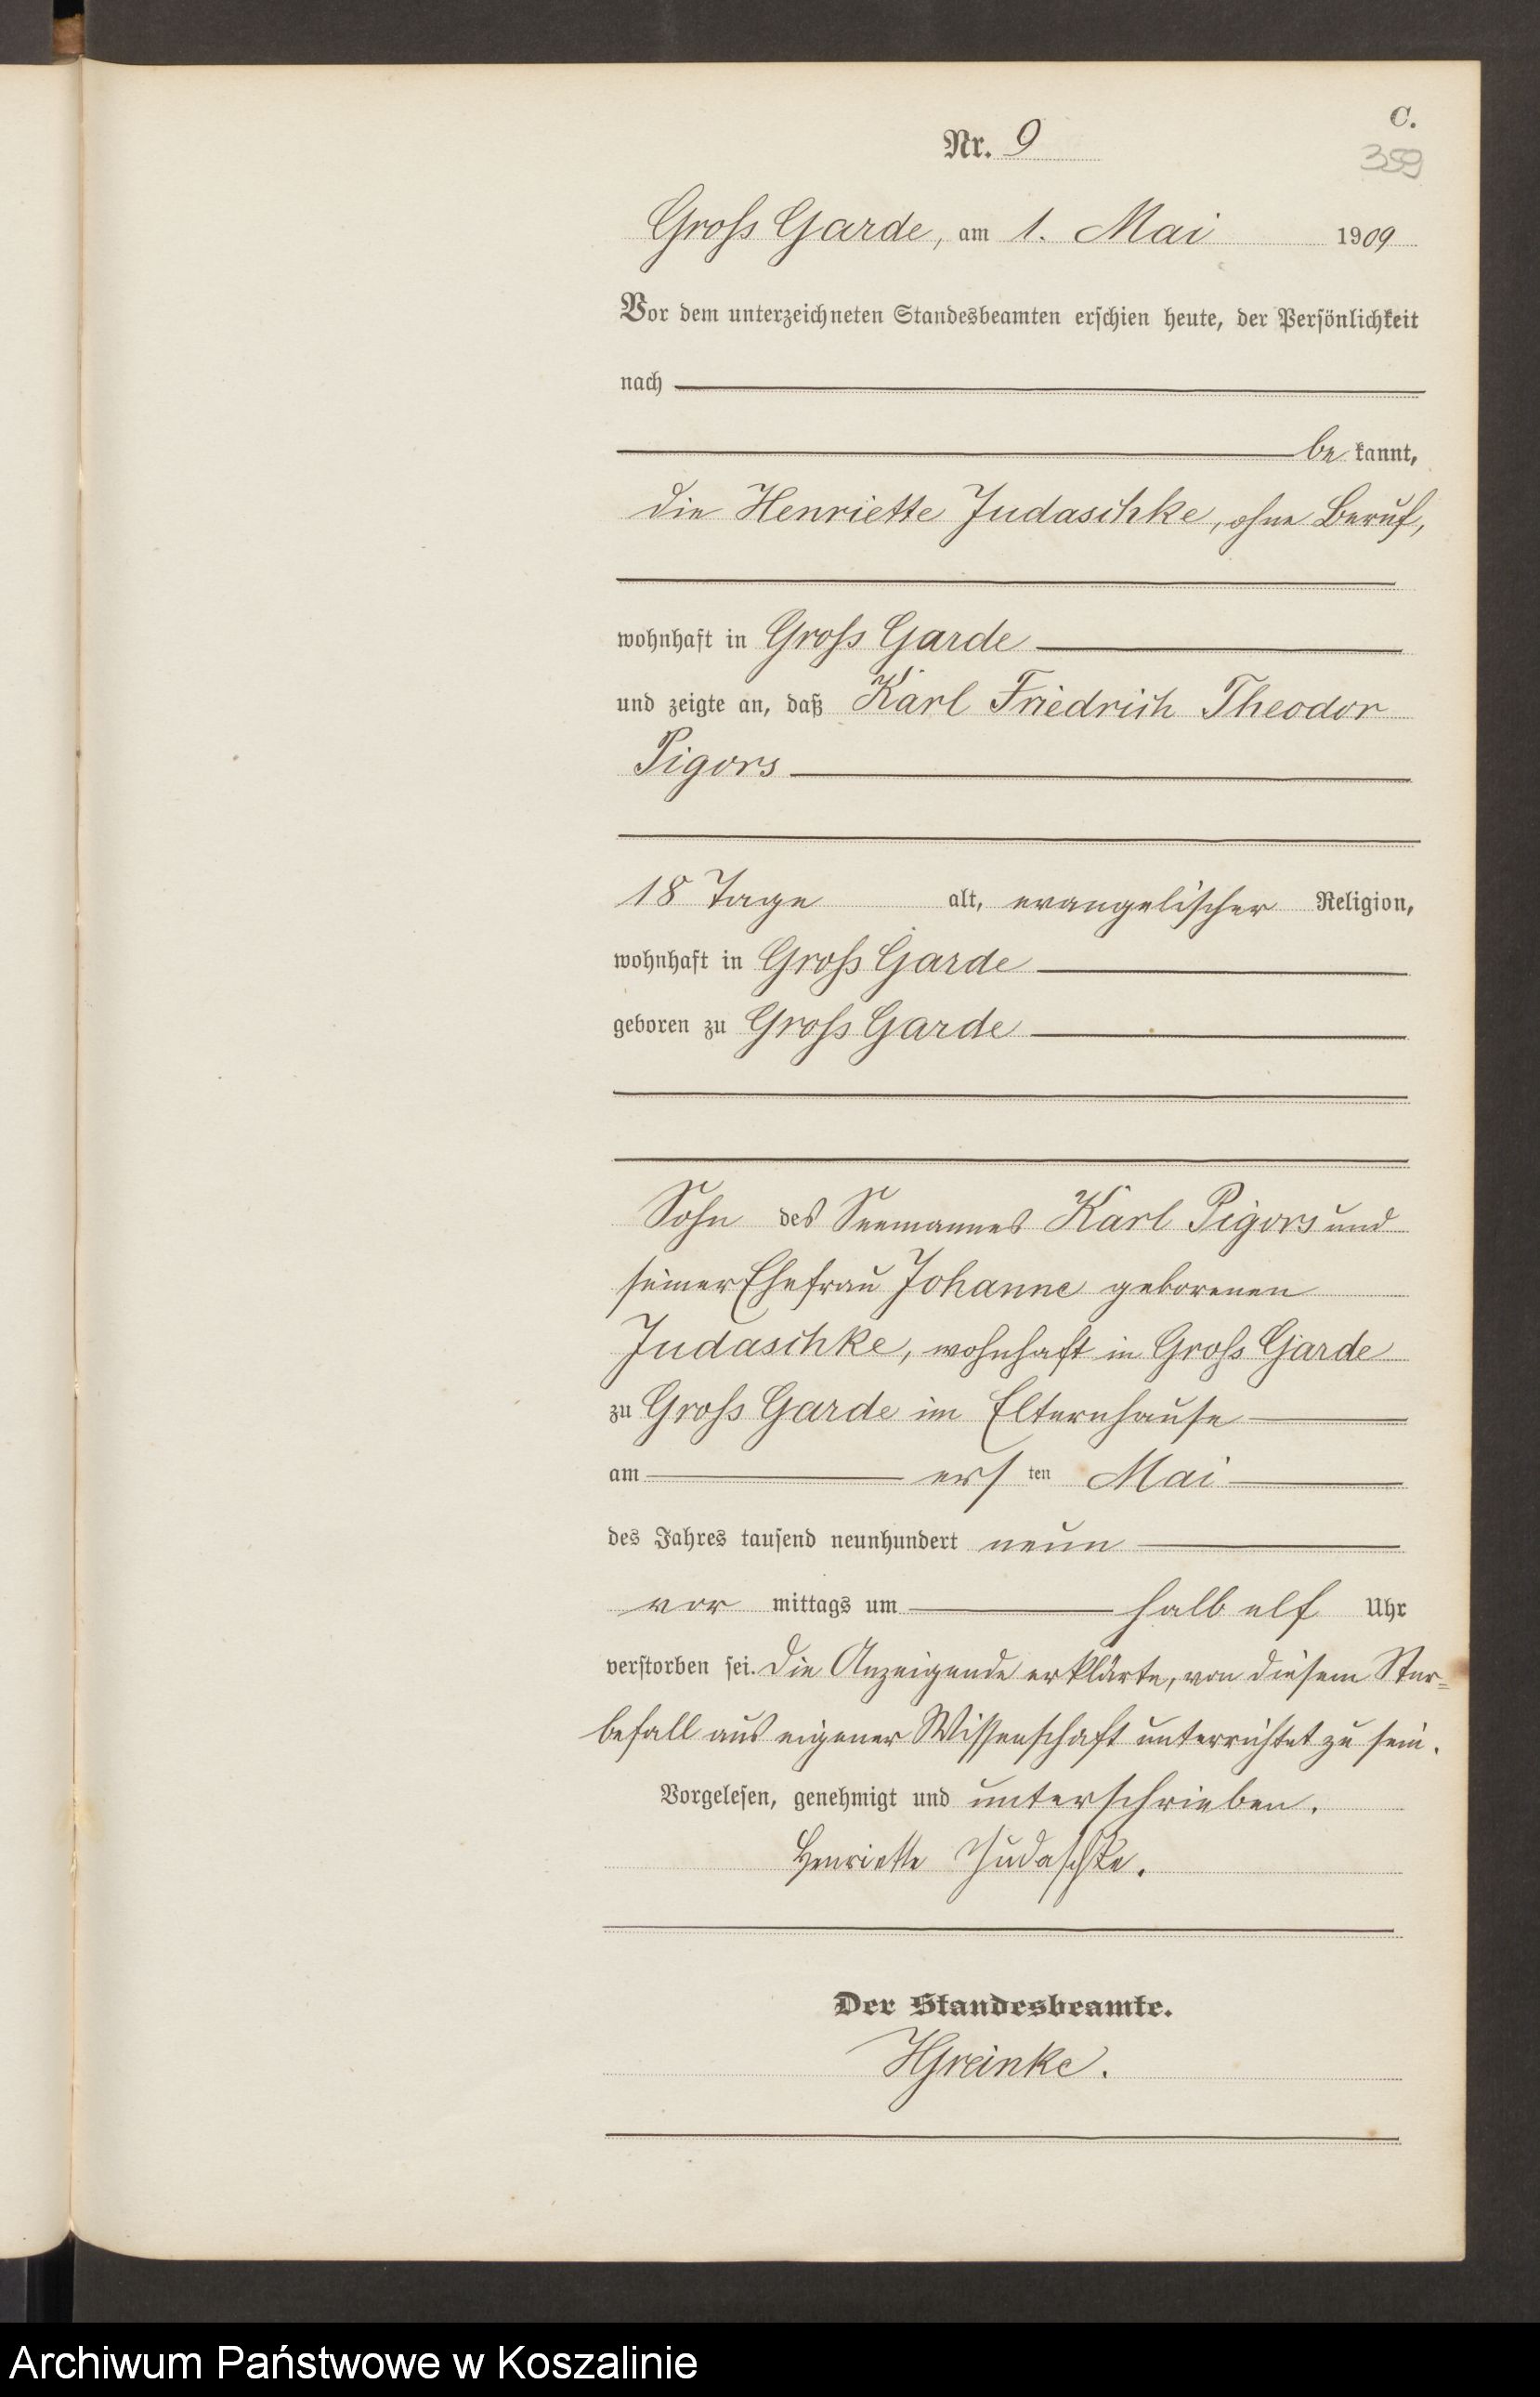 C.
Nr. 9
359
Gross Garde, am 1. Mai 1909
Vor dem unterzeichneten Standesbeamten erschien heute, der Persönlichkeit
nach
be kannt,
die Henriette Judaschke, ohne Beruf,
wohnhaft in Gross Garde
und zeigte an, daß Karl Friedrich Theodor
Pigors
18 Tage alt, evangelischer Religion,
wohnhaft in Gross Garde
geboren zu Gross Garde
Sohn des Seemannes Karl Pigors und
seiner Ehefrau Johanne geborenen
Judaschke, wohnhaft in Gross Garde
zu Gross Garde im Elternhause
am ersten Mai
des Jahres tausend neunhundert neun
vor mittags um halb elf Uhr
verstorben sei. Die Anzeigende erklärte, von diesem Ster=
befall aus eigener Wissenschaft unterrichtet zu sein.
Vorgelesen, genehmigt und unterschrieben.
Henriette Judaschke.
Der Standesbeamte.
HGreinke.
Archiwum Państwowe w Koszalinie